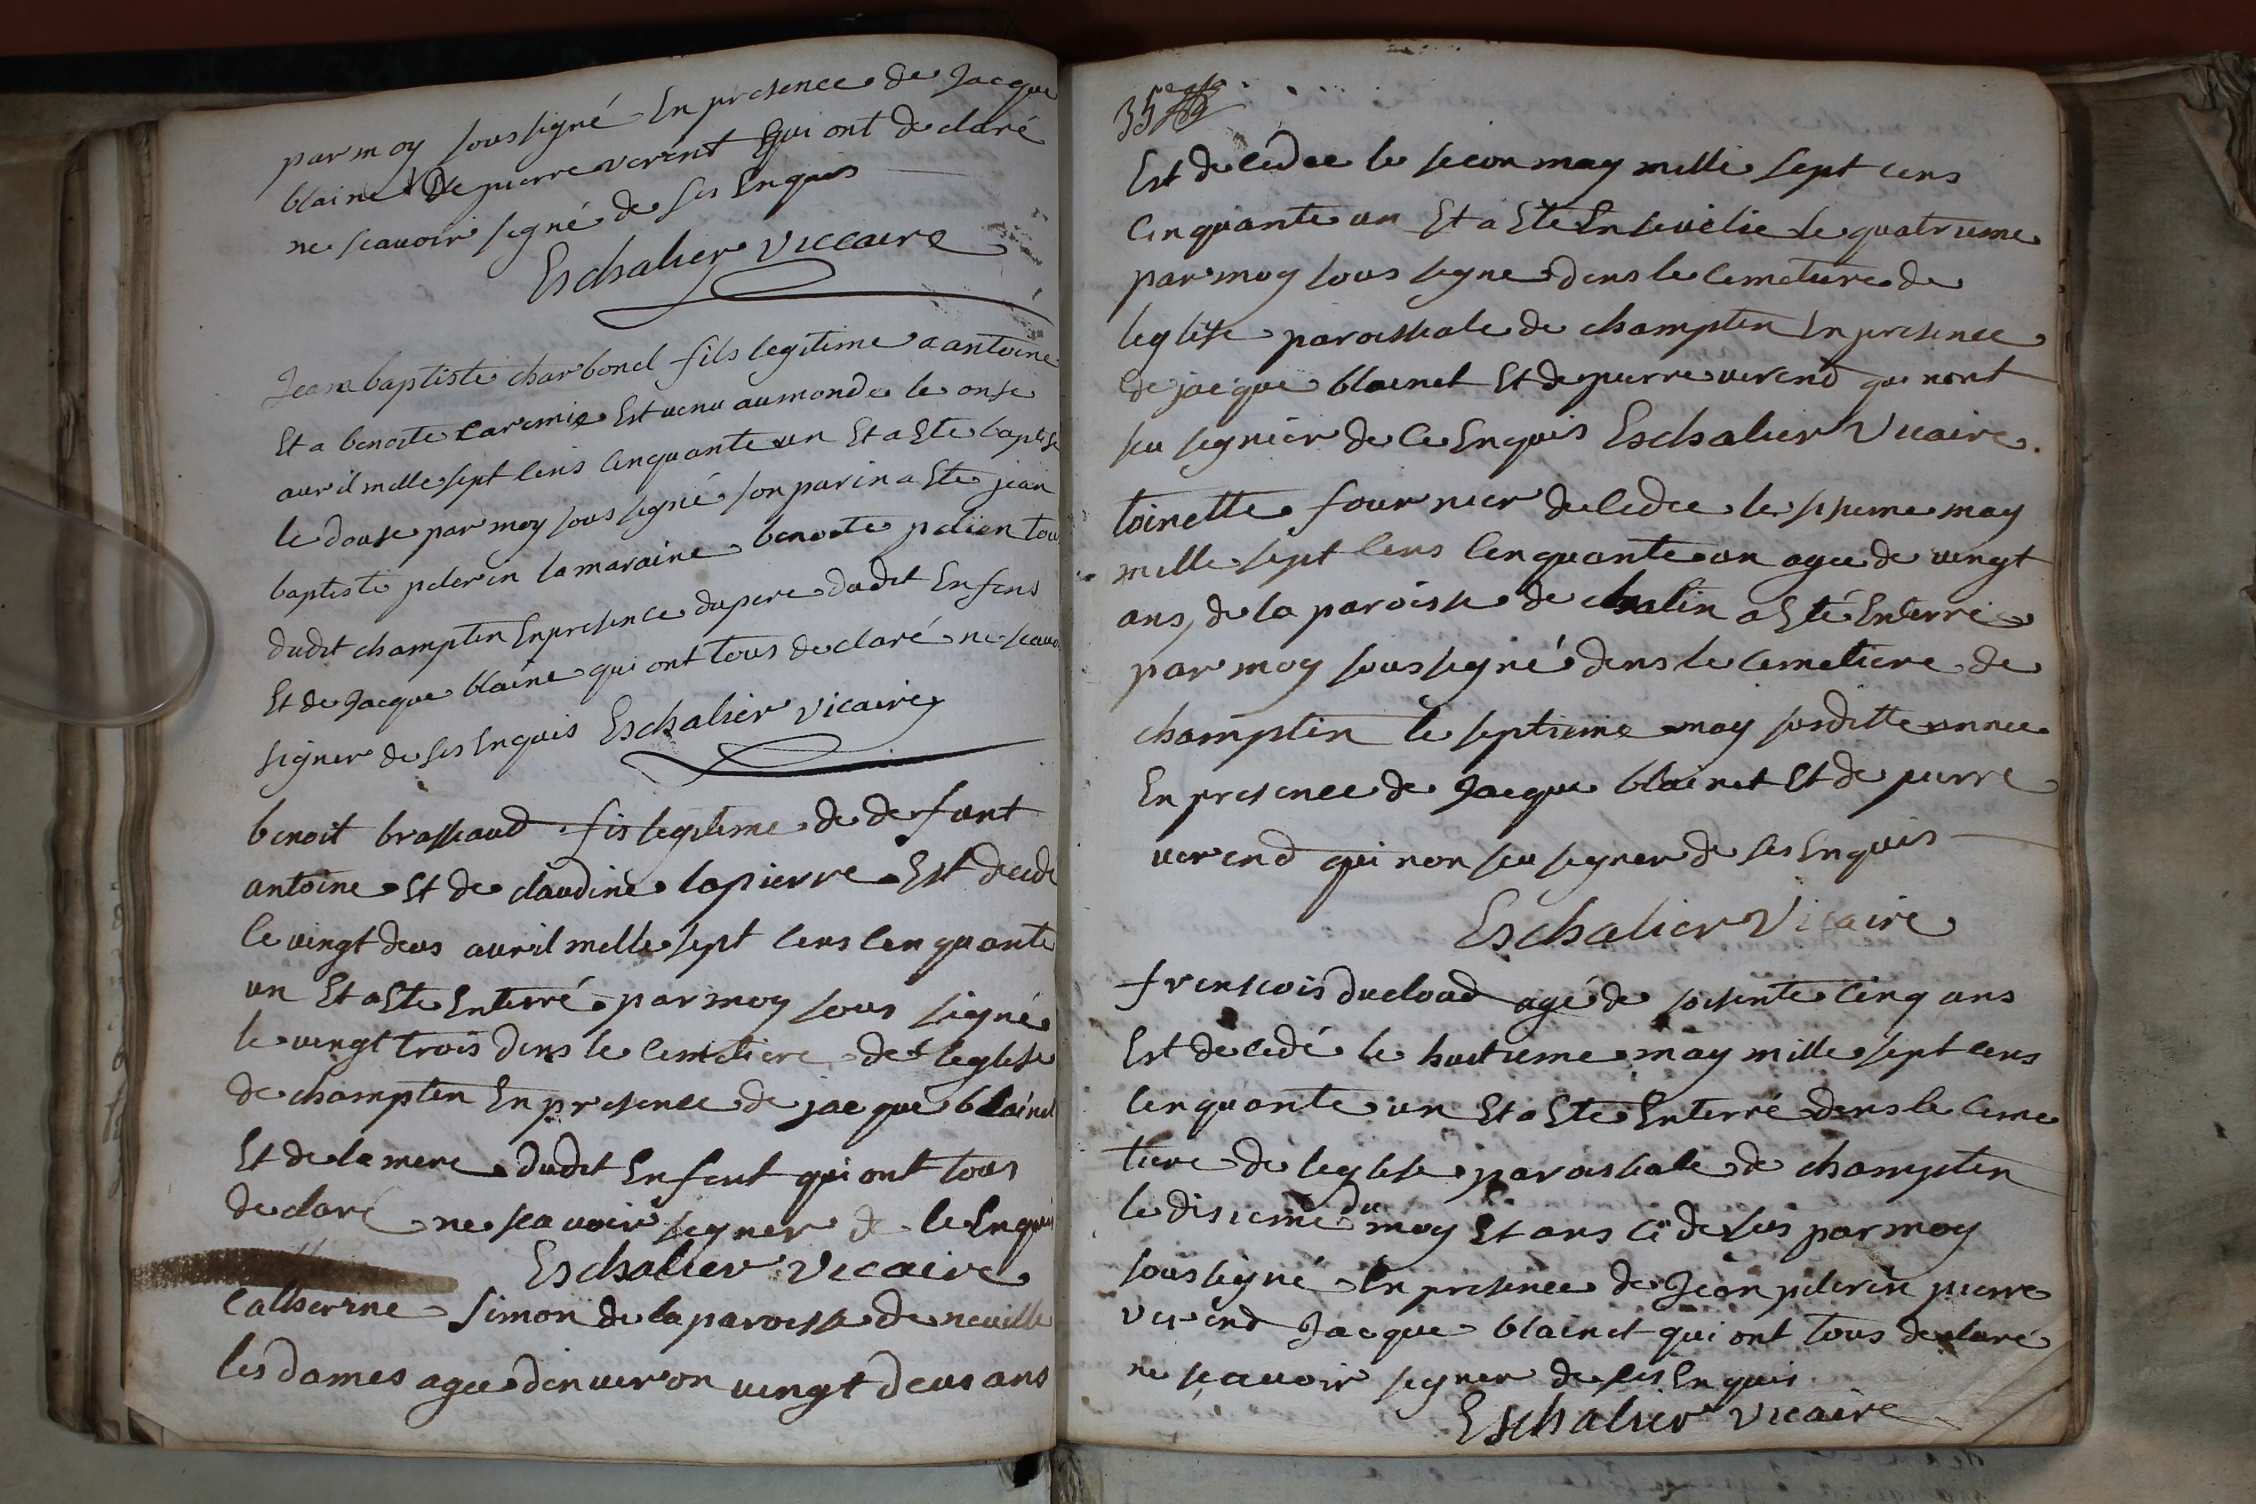 par moy sous signé En presence de Jacque
blainet De pierre verent qui ont declaré
ne scavoir signé de ses Enquis
Eschalier viccaire
Jean baptiste charbonel fils legitime a antoine
Et a benoite caremie Est venu au monde le onse
avril mille sept cens cinquante un Et a Ete baptisé
le douse par moy sous signé son parin a Ete jean
baptiste pelerin la maraine benoite
dudit champtin En presence du pere dudit Enfens
Et de Jacque blaine qui ont tous declaré ne scavoi
signer de ses Enquis Eschalier vicaire
benoit brassaud fis legitime de defunt
antoine Et de claudine lapierre Est decede
le vingt deus avril mille sept cens cenquante
un Et a Ete Enterré par moy sous signé
le vingt trois dens le cemetiere de leglise
de champtin En presence de jacque blainet
Et de la mere dudit Enfent qui ont tous
declaré ne scavoir segner de ce Enquis
Eschalier vicaire
Catherine Simon de la paroisse de neuville
les dames agee denveron vingt deus ans
35
Est decedee le secon may mille sept cens
cinquante un Et a Ete Ensevelie le quatrieme
par moy sous segne dens le cemetiere de
leglise paroissiale de champtin En presence
de jacque blainet Et de pierre verend qui nont
su segnier de ce Enquis Eschalier Vicaire.
toinette fournier decedee le sisieme may
mille sept cens cenquante un agee de vingt
ans, de la paroisse de chalin a Eté Enterré
par moy sous segné dens le cemetiere de
champtin le septieme may susditte annee
En presence de Jacque blainet Et de pierre
verend qui non su segner de ses Enquis
Eschalier Vicaire
frenscois ducloud agé de soisente cinq ans
Est decedé le huitieme may mille sept cens
cenquante un Et a Ete Enterré dens le ceme
tiere de leglise paroissiale de champtin
le disieme du moy Et ans ci desus par moy
sous signé En presence de Jean pelerin pierre
verend Jacque blainet qui ont tous declaré
ne scavoir segner de ses Enquis
Eschalier vicaire